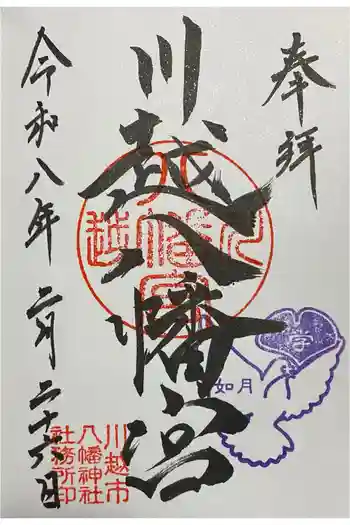 奉拝
川越八幡宮
令和八年二月二十六日
如月
川越市
八幡神社
社務所印